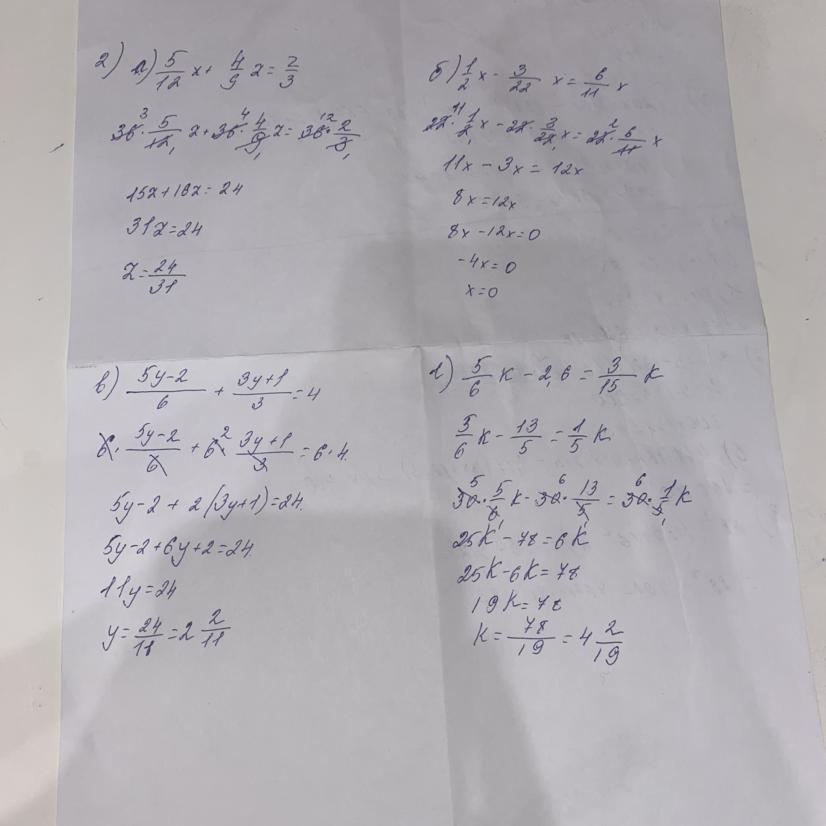 2) а) 5/12 z + 4/9 z = 2/3
36³ · 5/12₁ z + 36⁴ · 4/9₁ z = 36¹² · 2/3₁
15z + 16z = 24
31z = 24
z = 24/31
б) 1/2 x - 3/22 x = 6/11 x
22¹¹ · 1/2₁ x - 22 · 3/22₁ x = 22² · 6/11 x
11x - 3x = 12x
8x = 12x
8x - 12x = 0
-4x = 0
x = 0
в) (5y-2)/6 + (3y+1)/3 = 4
6 · (5y-2)/6 + 6² · (3y+1)/3 = 6 · 4
5y - 2 + 2(3y+1) = 24.
5y - 2 + 6y + 2 = 24.
11y = 24
y = 24/11 = 2 2/11
г) 5/6 к - 2,6 = 3/15 к
5/6 к - 13/5 = 1/5 к
30⁵ · 5/6₁ к - 30⁶ · 13/5 = 30⁶ · 1/5₁ к
25к - 78 = 6к
25к - 6к = 78
19к = 78
к = 78/19 = 4 2/19